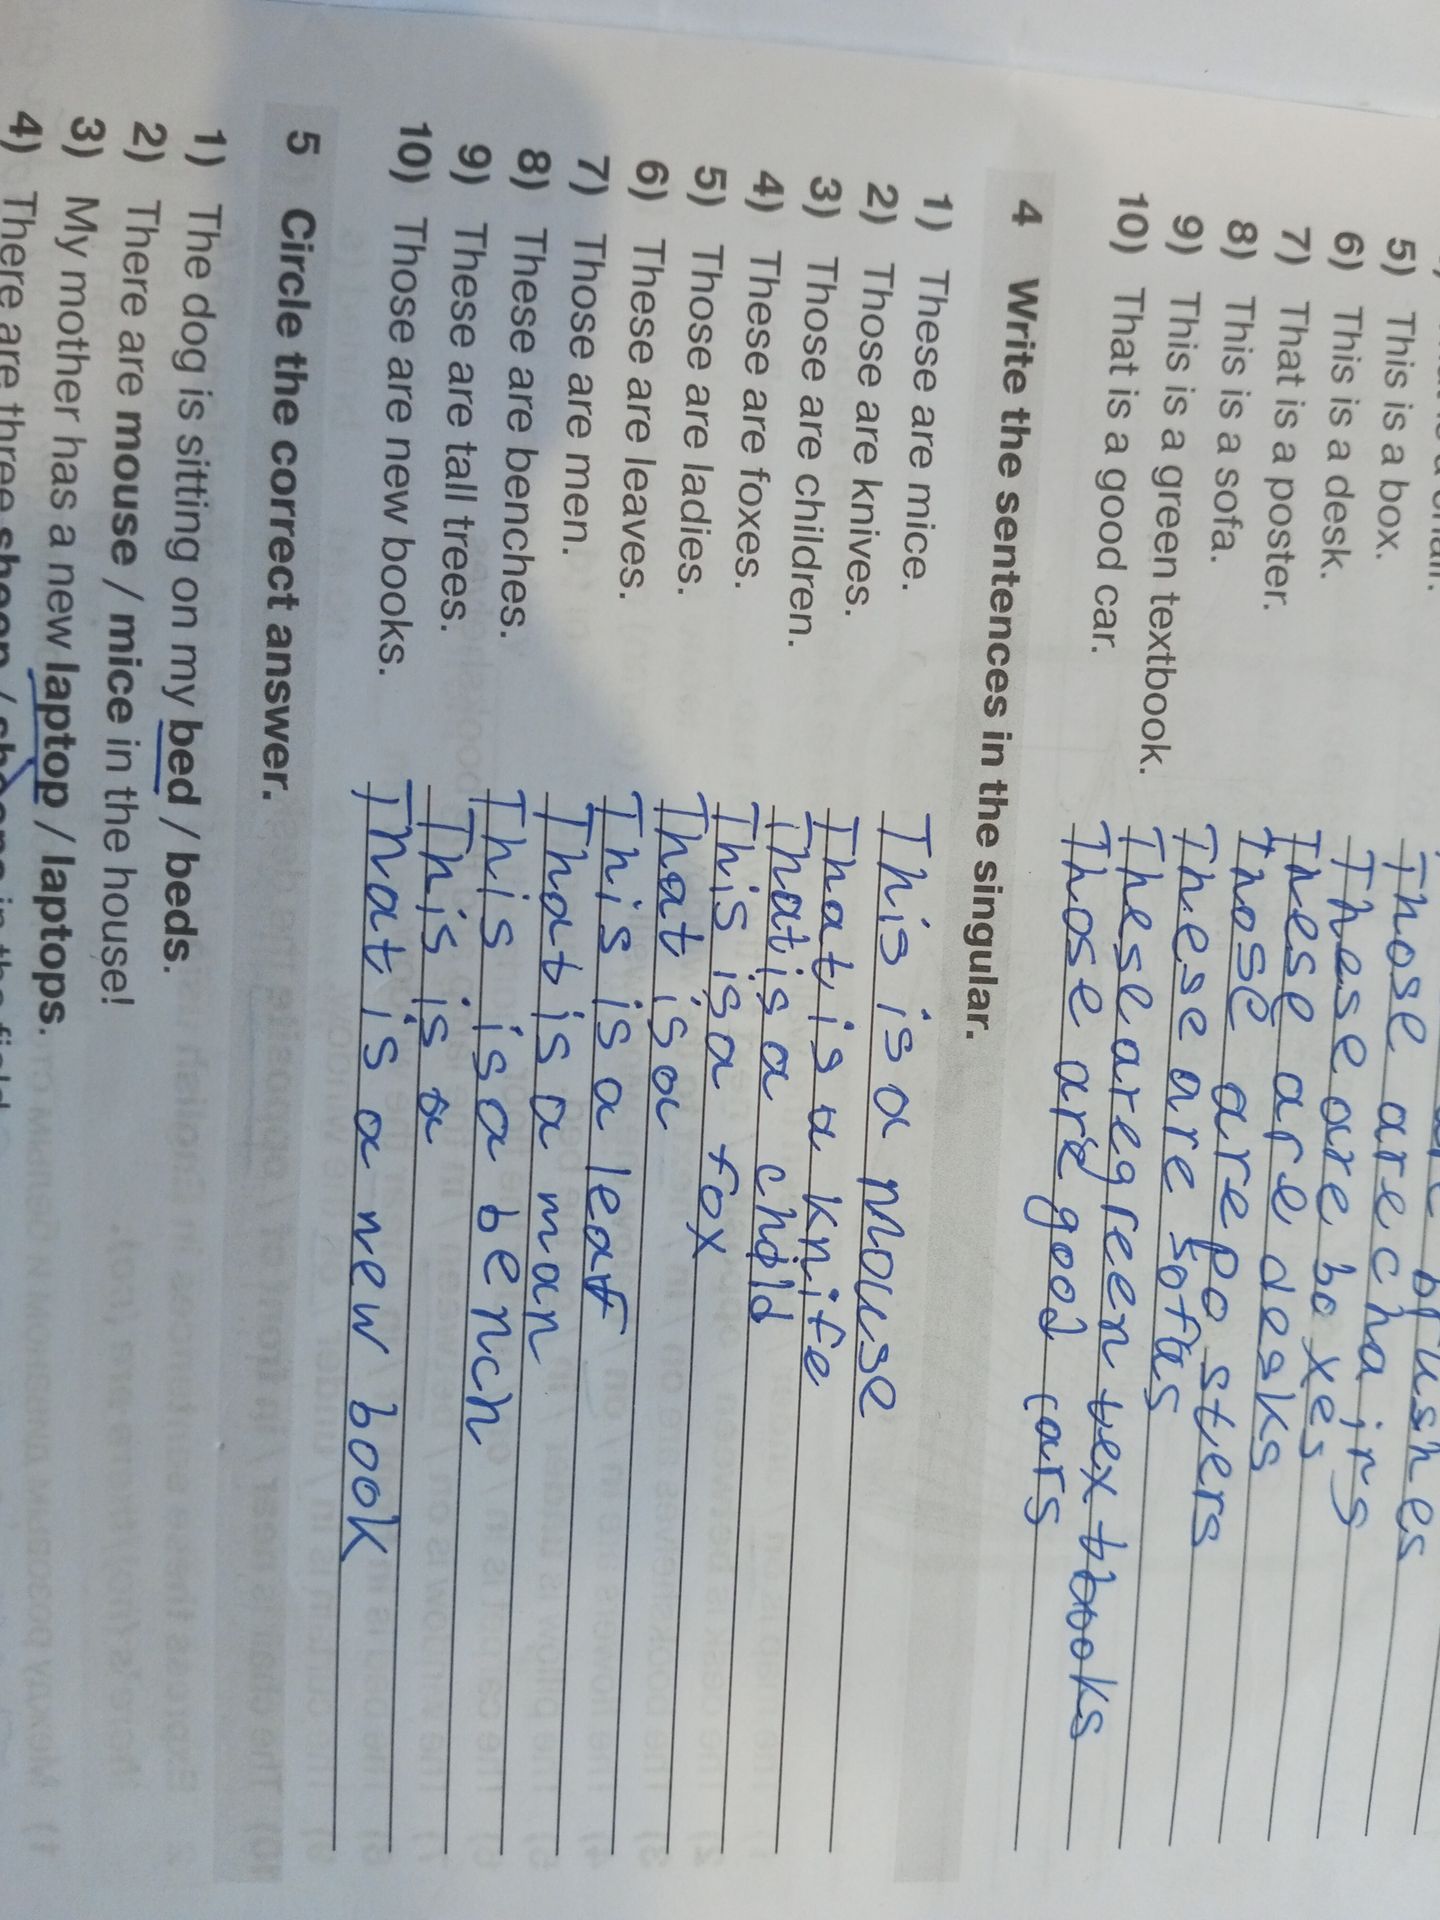 5) This is a box. Those are chairs
6) This is a desk. These are boxes
7) That is a poster. These are desks
8) This is a sofa. Those are posters
9) This is a green textbook. These are sofas
10) That is a good car. These are green textbooks
Those are good cars
4 Write the sentences in the singular.
1) These are mice. This is a mouse
2) Those are knives. That is a knife
3) Those are children. That is a child
4) These are foxes. This is a fox
5) Those are ladies. That is a
6) These are leaves. This is a leaf
7) Those are men. That is a man
8) These are benches. This is a bench
9) These are tall trees. This is a
10) Those are new books. That is a new book
5 Circle the correct answer.
1) The dog is sitting on my bed / beds.
2) There are mouse / mice in the house!
3) My mother has a new laptop / laptops.
4) There are three sheep / in the